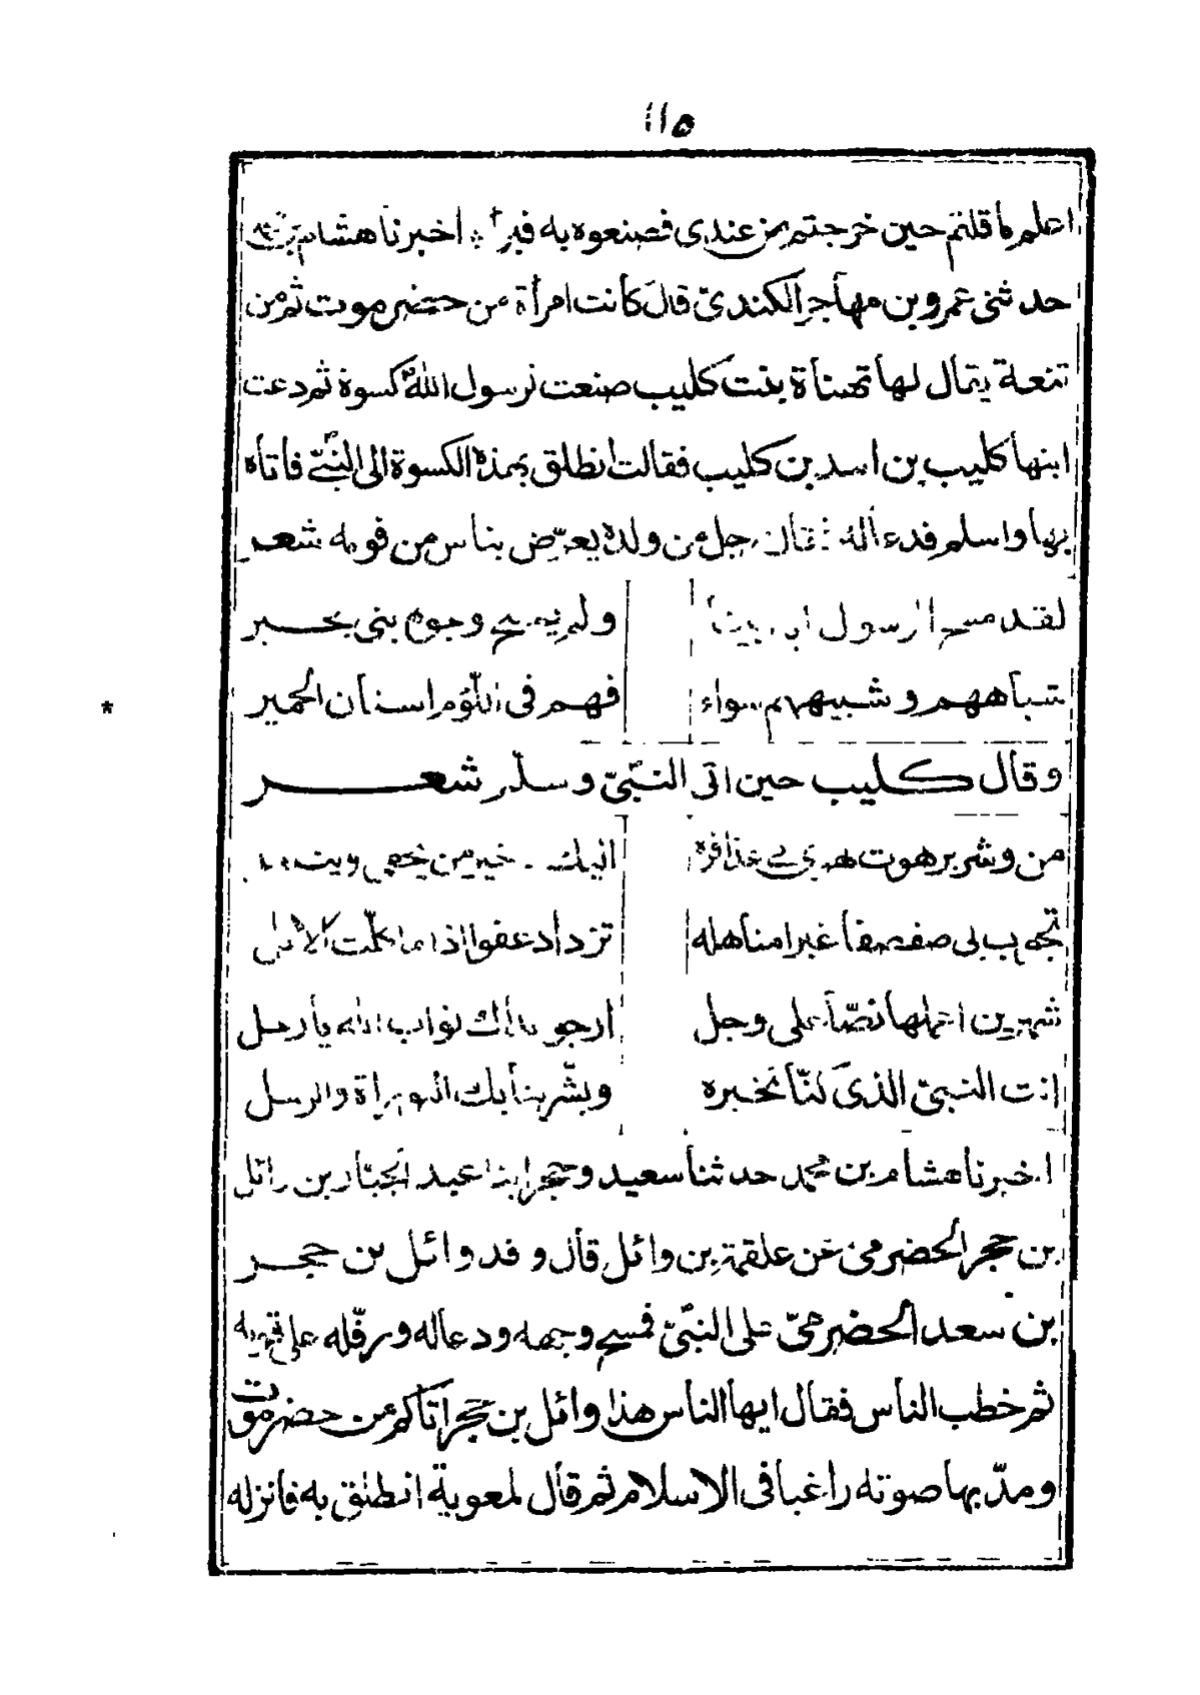 ١١٥
اعلم ما قلتم حين خرجتم من عندى فصنعوه به فبرأ اخبرنا هشام بن محمد
حدثنى عمرو بن مهاجر الكندىّ قال كانت امرأة من حضرموت ثم من
تنعة يقال لها تهناة بنت كليب صنعت لرسول الله كسوة ثم دعت
ابنها كليب بن اسد بن كليب فقالت انطلق بهذه الكسوة الى النبىّ فاتاه
بها واسلم فدعا له فقال رجل من ولده يعرّض بناس من قومه شعر
لقد مسح الرسول ابا ابينا ولم يمسح وجوه بنى بحير
شبابهم وشيبهم سواء فهم فى اللؤم اسنان الحمير
وقال كليب حين اتى النبىّ وسلم شعر
من وشز برهوت تهوى بى عذافرة اليك يا خير من يحفى وينتعل
تجوب بى صفصفا غبرا مناهله تزداد عفوا اذا ما كلّت الابل
شهرين اعملها نصّا على وجل ارجو بذاك ثواب الله يا رجل
انت النبىّ الذى كنّا نخبره وبشّرتنا بك التوراة والرسل
اخبرنا هشام بن محمد حدثنا سعيد وحجر ابنا عبد الجبّار بن وائل
بن حجر الحضرمى عن علقمة بن وائل قال وفد وائل بن حجر
بن سعد الحضرمىّ على النبىّ فمسح وجهه ودعا له ورفّله على قومه
ثم خطب الناس فقال ايها الناس هذا وائل بن حجر اتاكم من حضرموت
ومدّ بها صوته راغبا فى الاسلام ثم قال لمعوية انطلق به فانزله
*